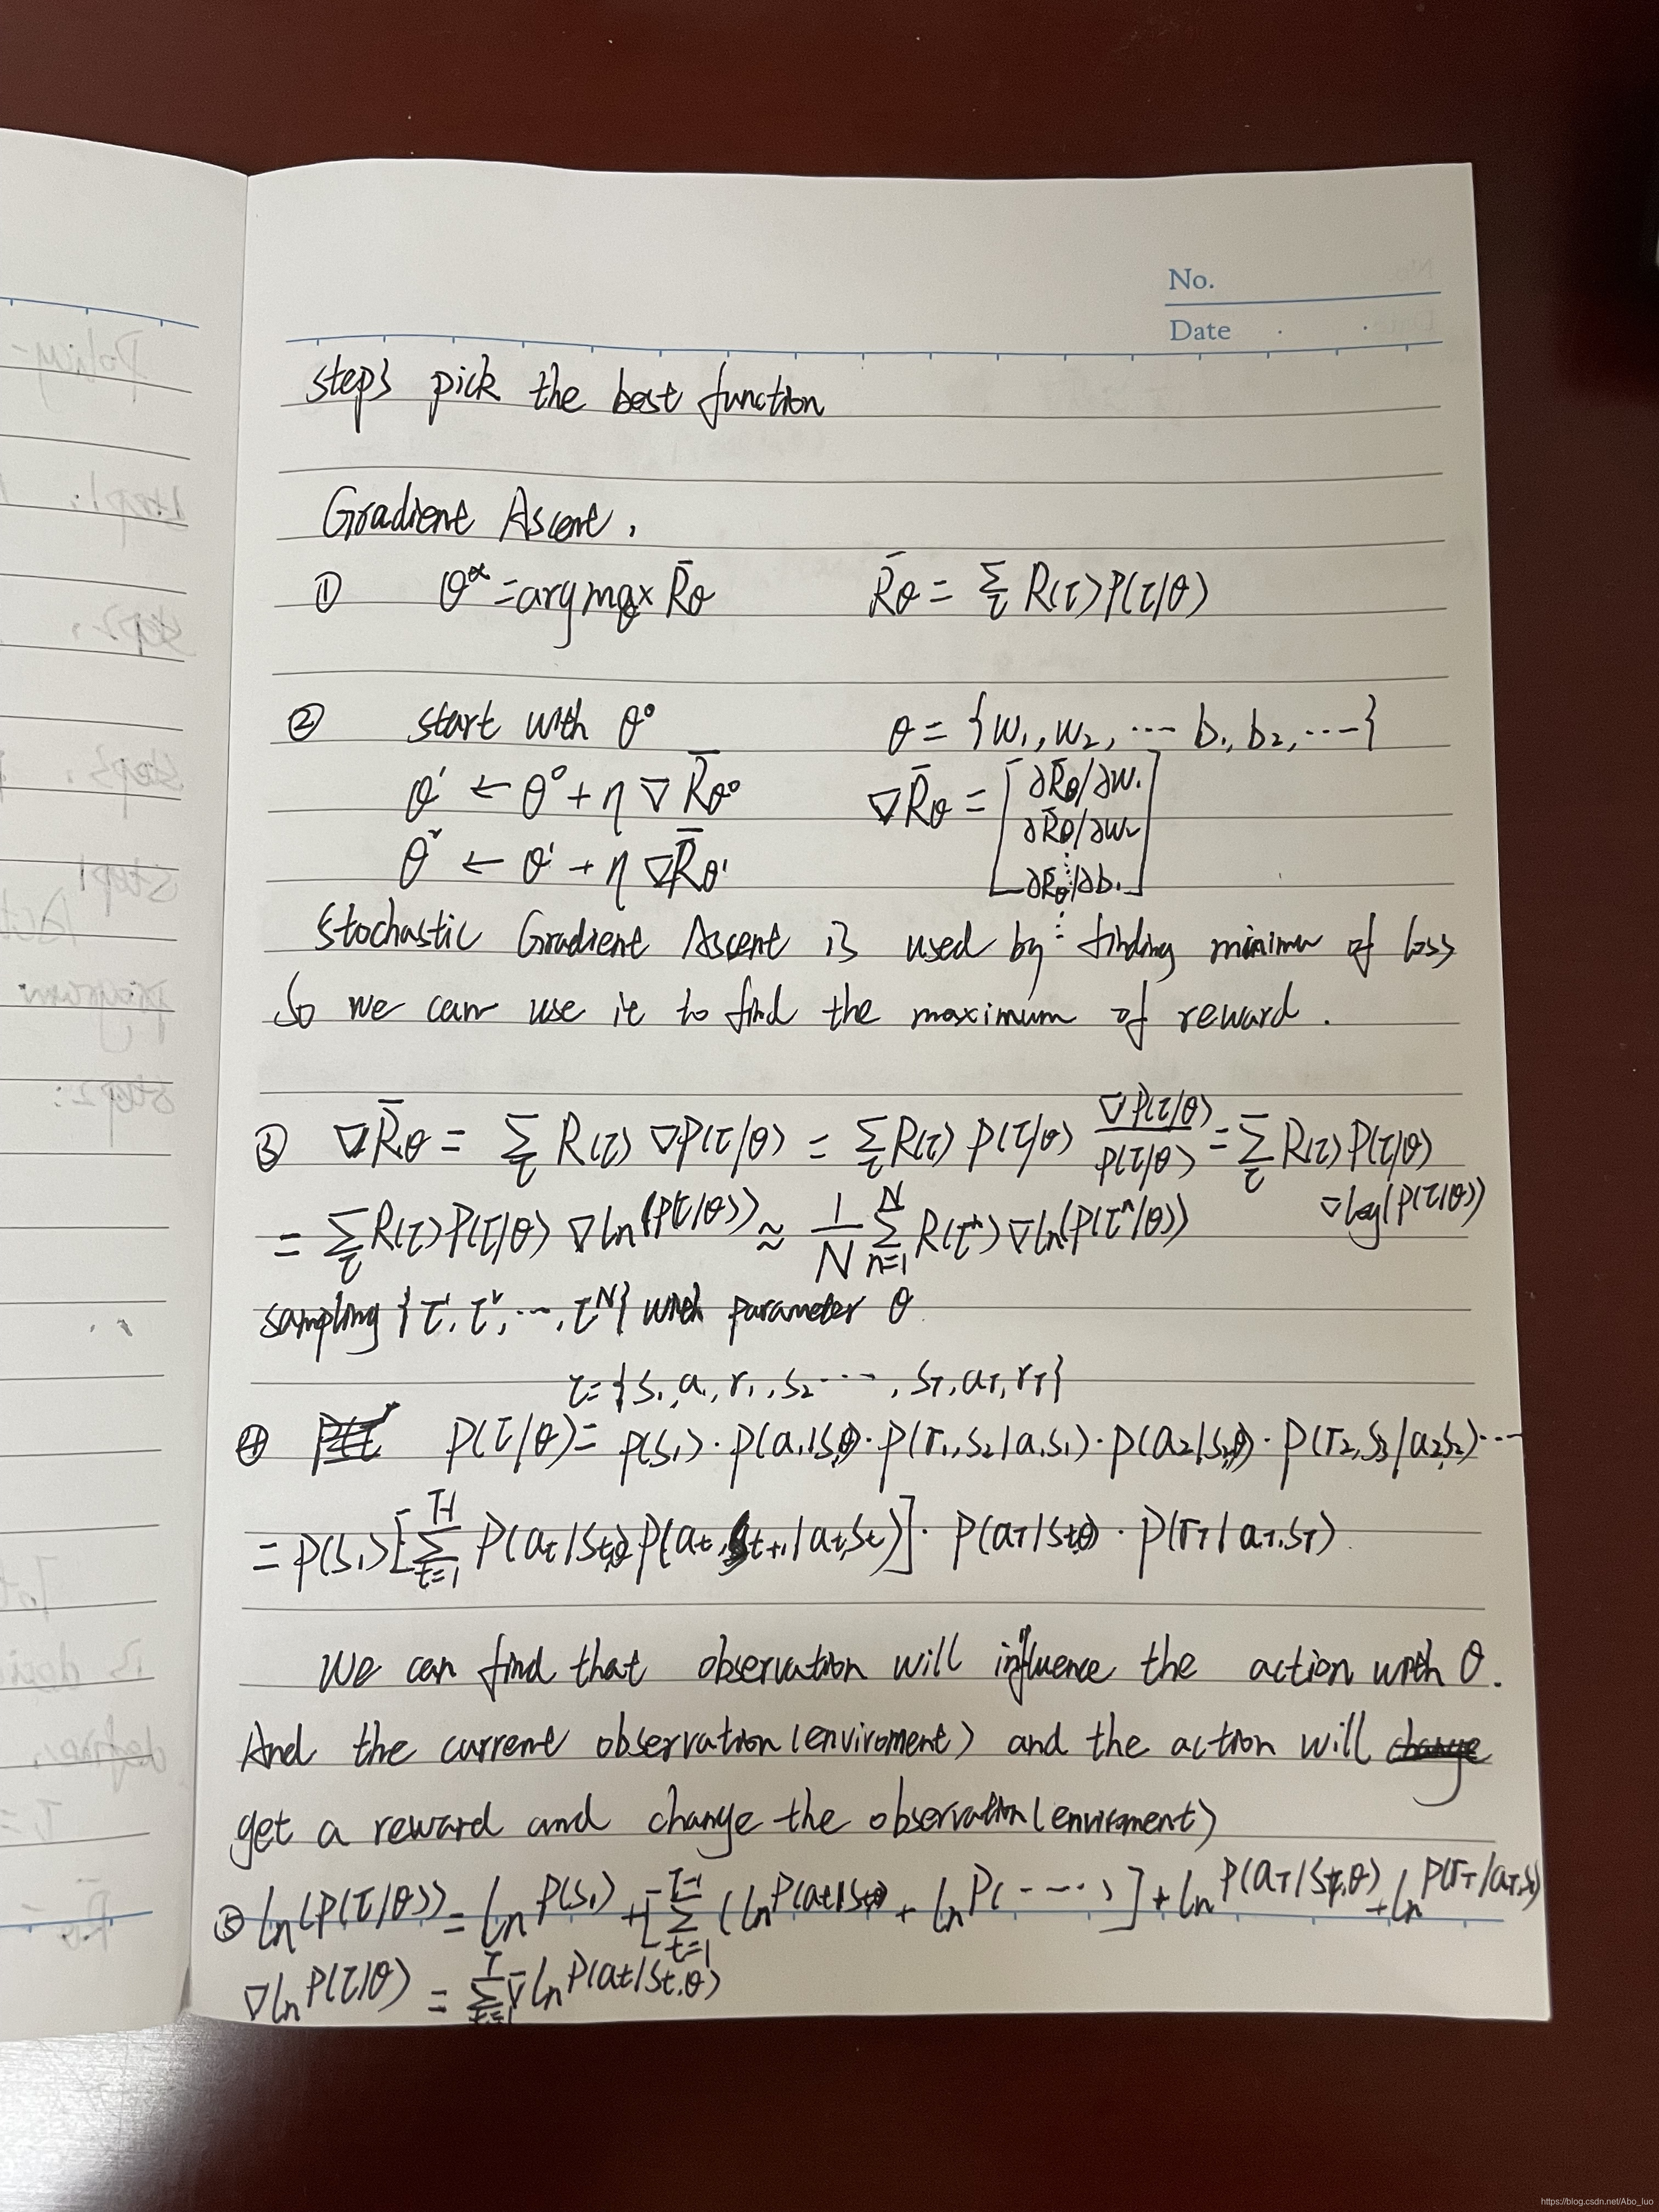 No.
Date
step3 pick the best function
Gradient Ascent.
① θ* = arg max_θ R̄θ R̄θ = Σ_τ R(τ) P(τ|θ)
② start with θ⁰ θ = {w₁, w₂, ⋯ b₁, b₂, ⋯}
θ¹ ← θ⁰ + η ∇R̄θ⁰ ∇R̄θ = [∂R̄θ/∂w₁
∂R̄θ/∂w₂
θ² ← θ¹ + η ∇R̄θ¹ ⋮
∂R̄θ/∂b₁ ⋮]
Stochastic Gradient Ascent is used by finding minimum of loss
So we can use it to find the maximum of reward.
③ ∇R̄θ = Σ_τ R(τ) ∇P(τ|θ) = Σ_τ R(τ) P(τ|θ) ∇P(τ|θ)/P(τ|θ) = Σ_τ R(τ) P(τ|θ)
∇log(P(τ|θ))
= Σ_τ R(τ) P(τ|θ) ∇ln(P(τ|θ)) ≈ 1/N Σ_{n=1}^N R(τⁿ) ∇ln(P(τⁿ|θ))
sampling {τ¹, τ², ⋯, τᴺ} with parameter θ
τ = {s₁, a₁, r₁, s₂ ⋯, s_T, a_T, r_T}
④ P(τ|θ) = P(s₁) · P(a₁|s₁,θ) · P(r₁, s₂|a₁s₁) · P(a₂|s₂,θ) · P(r₂, s₃|a₂,s₂) ⋯
= P(s₁) [Σ_{t=1}^{T-1} P(a_t|s_t,θ) P(a_t, s_{t+1}|a_t,s_t)] · P(a_T|s_t,θ) · P(r_T|a_T,s_T)
We can find that observation will influence the action with θ.
And the current observation(enviroment) and the action will change
get a reward and change the observation(enviroment)
⑤ ln(P(τ|θ)) = ln P(s₁) + [Σ_{t=1}^{T-1} (ln P(a_t|s_t,θ) + ln P(⋯)] + ln P(a_T|s_T,θ) + ln P(r_T|a_T,s_T)
∇ln P(τ|θ) = Σ_{t=1}^T ∇ln P(a_t|s_t,θ)
https://blog.csdn.net/Abo_luo